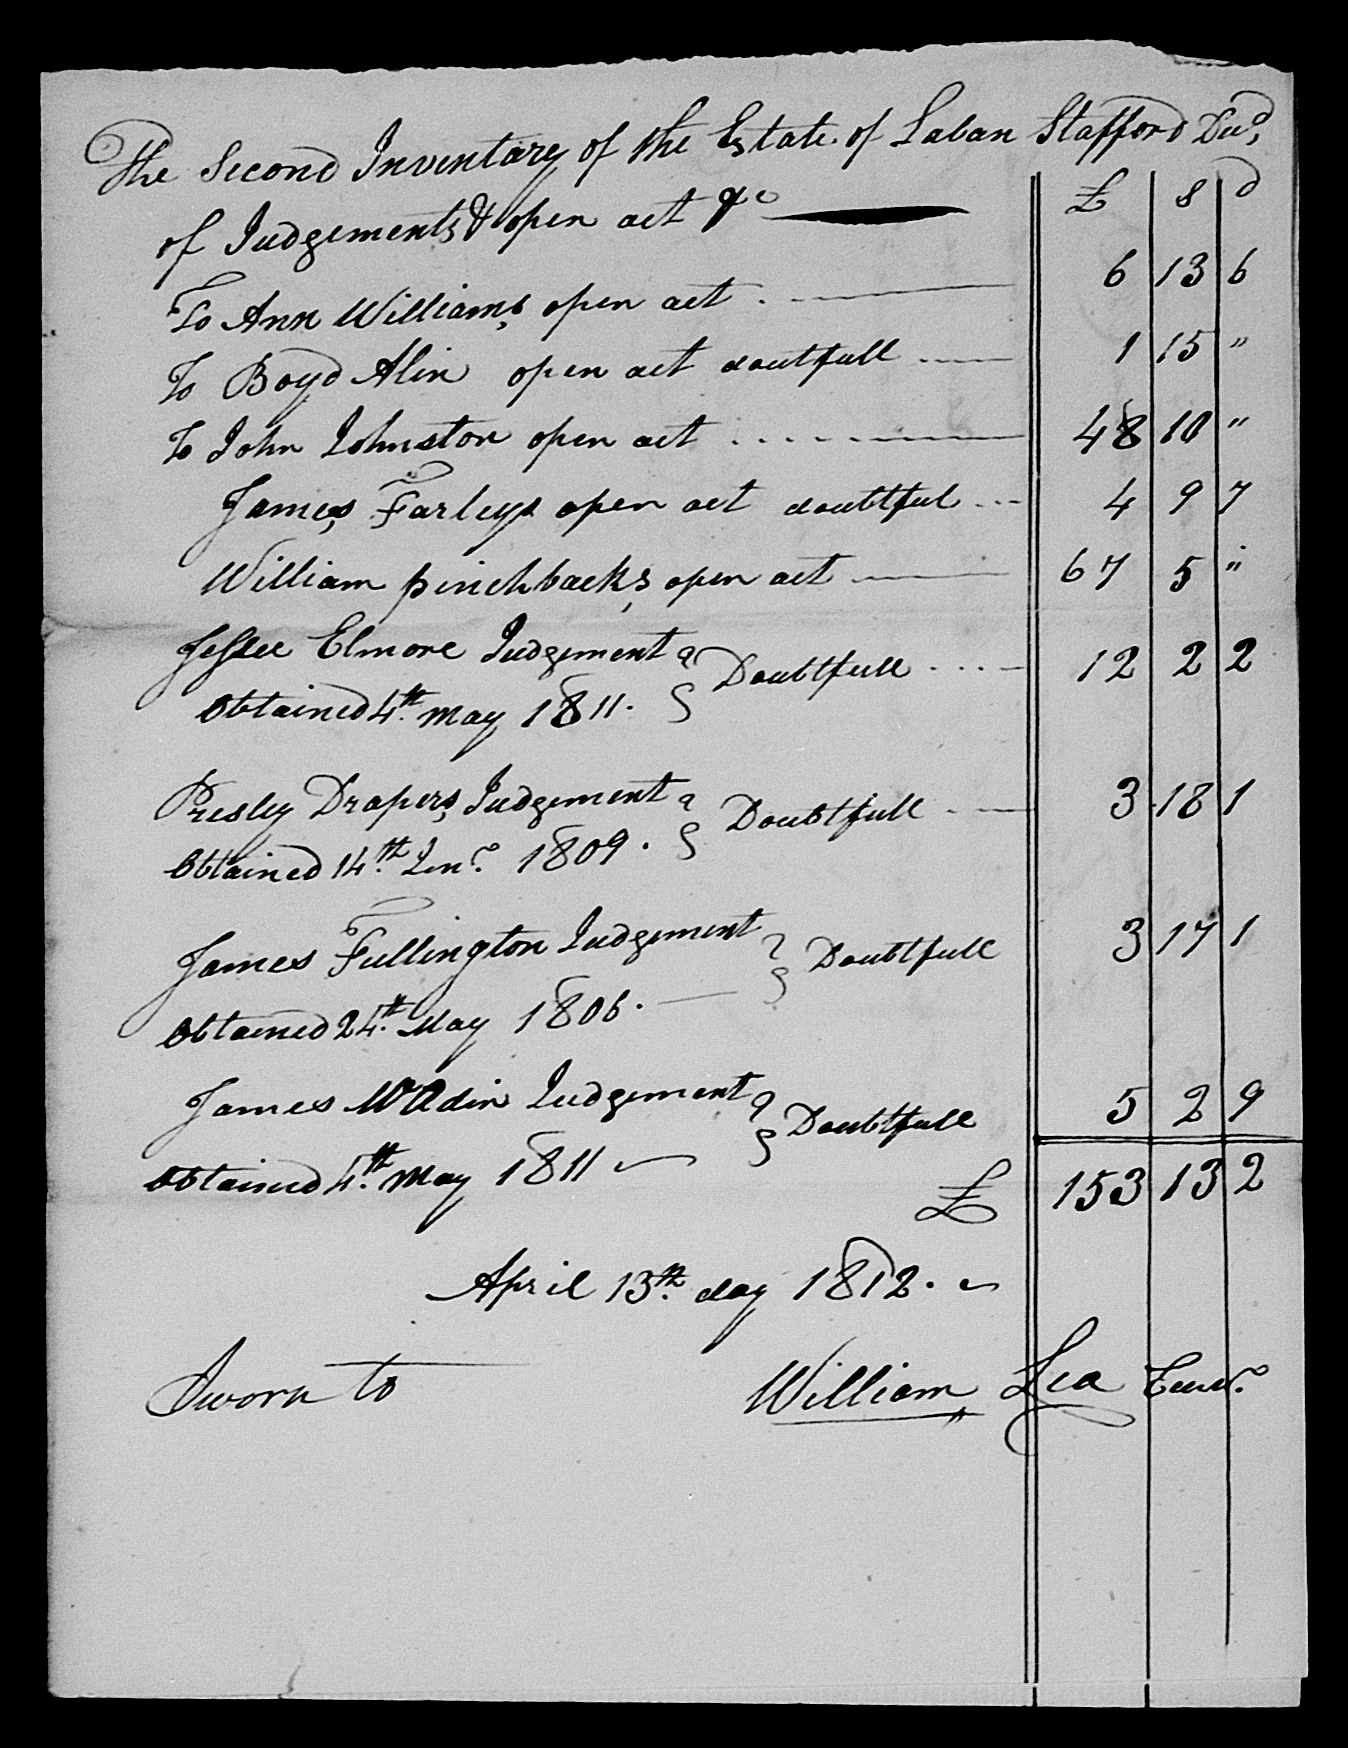 The Second Inventary of the Estate of Laban Stafford Decd,
of Judgements & open act &c £ s d
To Ann Williams open act 6 13 6
To Boyd Alin open act doutfull 1 15 "
To John Johnston open act 48 10 "
James Farleys open act doubtful 4 9 7
William pinchbacks open act 67 5 "
Jessee Elmore Judgement Doubtfull 12 2 2
Obtained 4th May 1811.
Presley Drapers Judgement Doubtfull 3 18 1
Obtained 14th 1809.
James Fullington Judgement Doubtfull 3 17 1
Obtained 24th May 1806.
James McAdin Judgement Doubtfull 5 2 9
Obtained 4th May 1811
£ 153 13 2
April 13th day 1812.
Sworn to William Lea